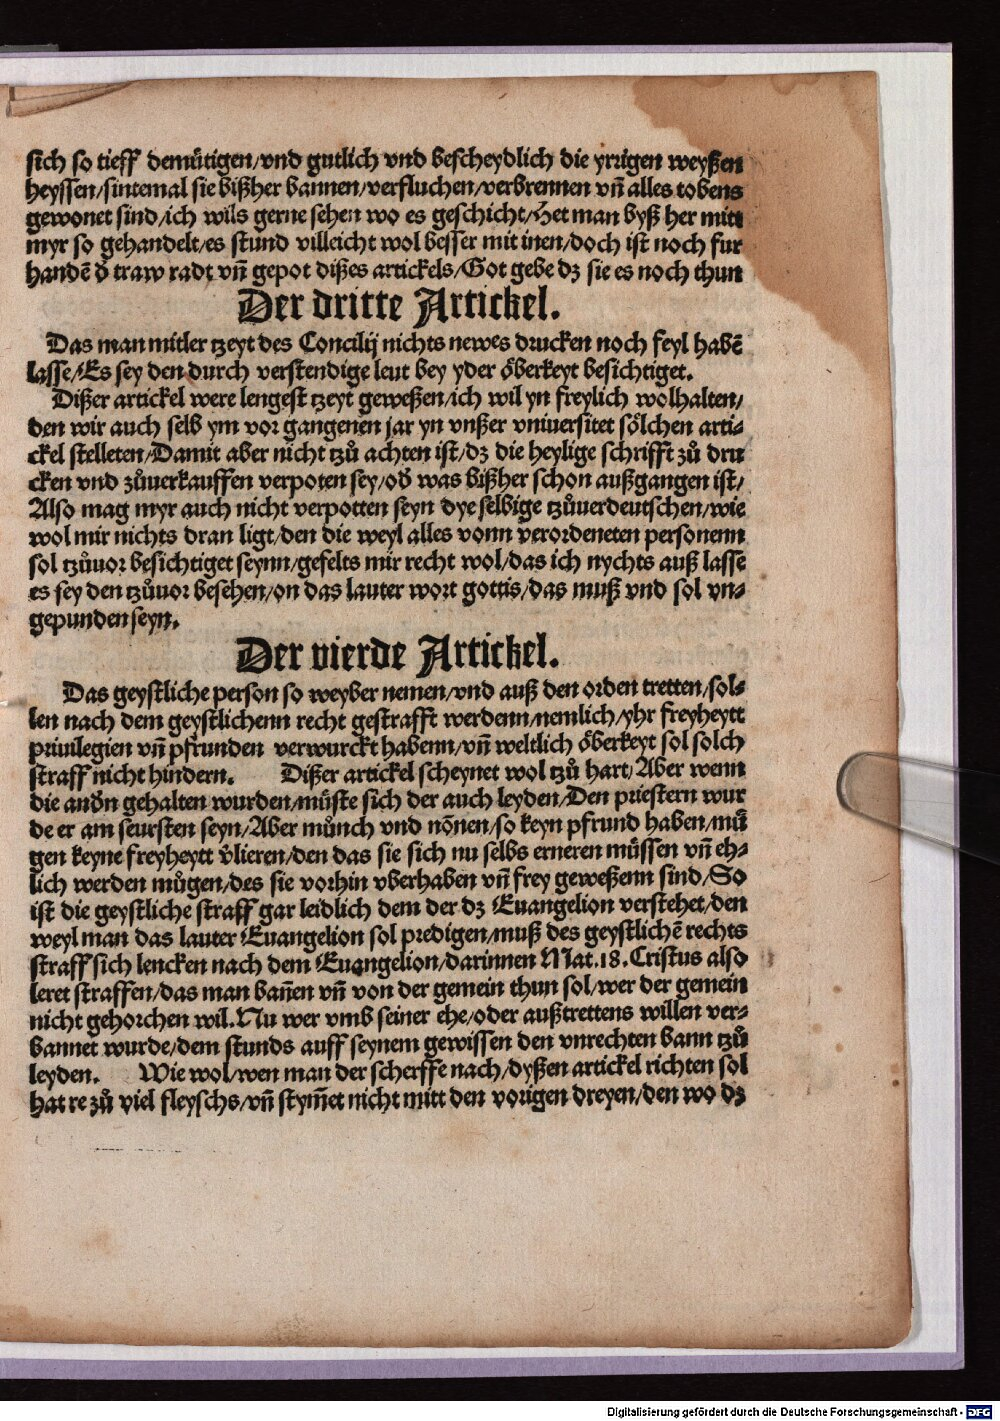 sich so tieff demütigen/vnd gutlich vnd bescheydlich die yrrigen weyßen
heyssen/sintemal sie bißher bannen/verfluchen/verbrennen vñ alles tobens
gewonet sind/ich wils gerne sehen wo es geschicht/Het man byß her mitt
myr so gehandelt/es stund villeicht wol besser mit inen/doch ist noch fur
handẽ d̓ traw radt vñ gepot dißes artickels/Got gebe dz sie es noch thun
Der dritte Artickel.
Das man mitler tzeyt des Concilij nichts newes drucken noch feyl habẽ
lasse/Es sey den durch verstendige leut bey yder öberkeyt besichtiget.
Dißer artickel were lengest tzeyt geweßen/ich wil yn freylich wolhalten/
den wir auch selb ym vor gangenen jar yn vnßer vniuersitet sölchen arti-
ckel stelleten/Damit aber nicht tzů achten ist/dz die heylige schrifft zů dru
cken vnd zůuerkauffen verpoten sey/od̓ was bißher schon außgangen ist/
Also mag myr auch nicht verpotten seyn dye selbige tzůuerdeutschen/wie
wol mir nichts dran ligt/den die weyl alles vonn verordeneten personenn
sol tzůuor besichtiget seynn/gefelts mir recht wol/das ich nychts auß lasse
es sey den tzůuor besehen/on das lauter wort gottis/das muß vnd sol vn-
gepunden seyn.
Der vierde Artickel.
Das geystliche person so weyber nemen/vnd auß den orden tretten/sol-
len nach dem geystlichenn recht gestrafft werdenn/nemlich/yhr freyheytt
priuilegien vñ pfrunden verwurckt habenn/vñ weltlich öberkeyt sol solch
straff nicht hindern. Dißer artickel scheynet wol tzů hart/Aber wenn
die and̓n gehalten wurden/müste sich der auch leyden/Den priestern wur
de er am seursten seyn/Aber můnch vnd nönen/so keyn pfrund haben/mů
gen keyne freyheytt v̓lieren/den das sie sich nu selbs erneren müssen vñ eh-
lich werden můgen/des sie vorhin vberhaben vñ frey geweßenn sind/So
ist die geystliche straff gar leidlich dem der dz Euangelion verstehet/den
weyl man das lauter Euangelion sol predigen/muß des geystlichẽ rechts
straff sich lencken nach dem Euangelion/darinnen Mat.18.Cristus also
leret straffen/das man bañen vñ von der gemein thun sol/wer der gemein
nicht gehorchen wil.Nu wer vmb seiner ehe/oder außtrettens willen ver-
bannet wurde/dem stunds auff seynem gewissen den vnrechten bann tzů
leyden. Wie wol/wen man der scherffe nach/dyßen artickel richten sol
hat re zů viel fleyschs/vñ stym̃et nicht mitt den vorigen dreyen/den wo dz
Digitalisierung gefördert durch die Deutsche Forschungsgemeinschaft - DFG